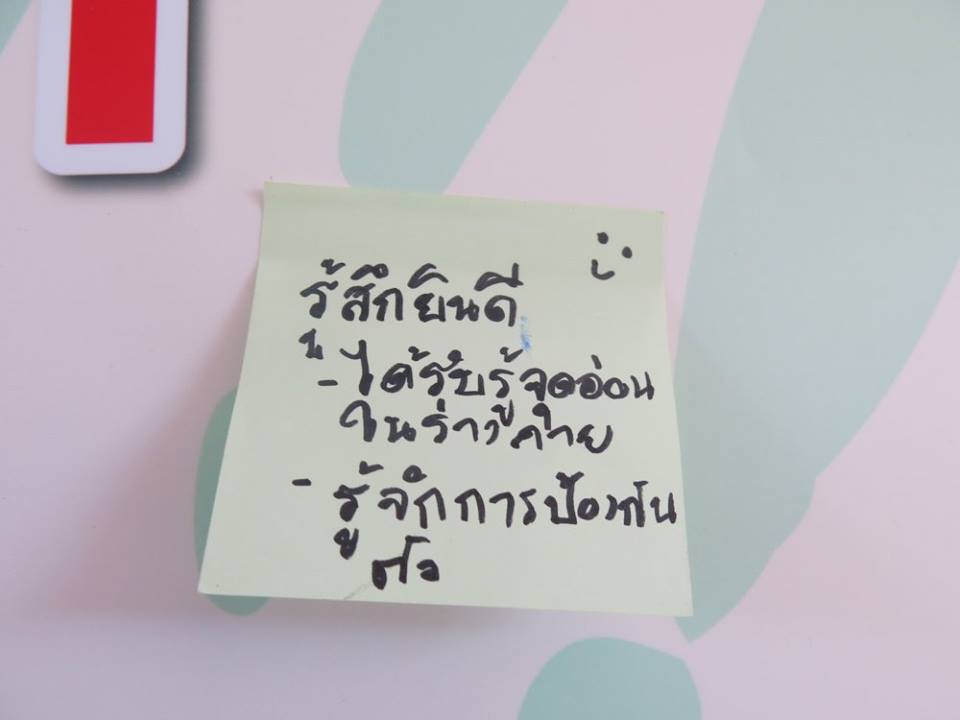 รู้สึกยินดี
- ได้รับรู้จุดอ่อน
ในร่างกาย
- รู้จักการป้องกัน
ตัว